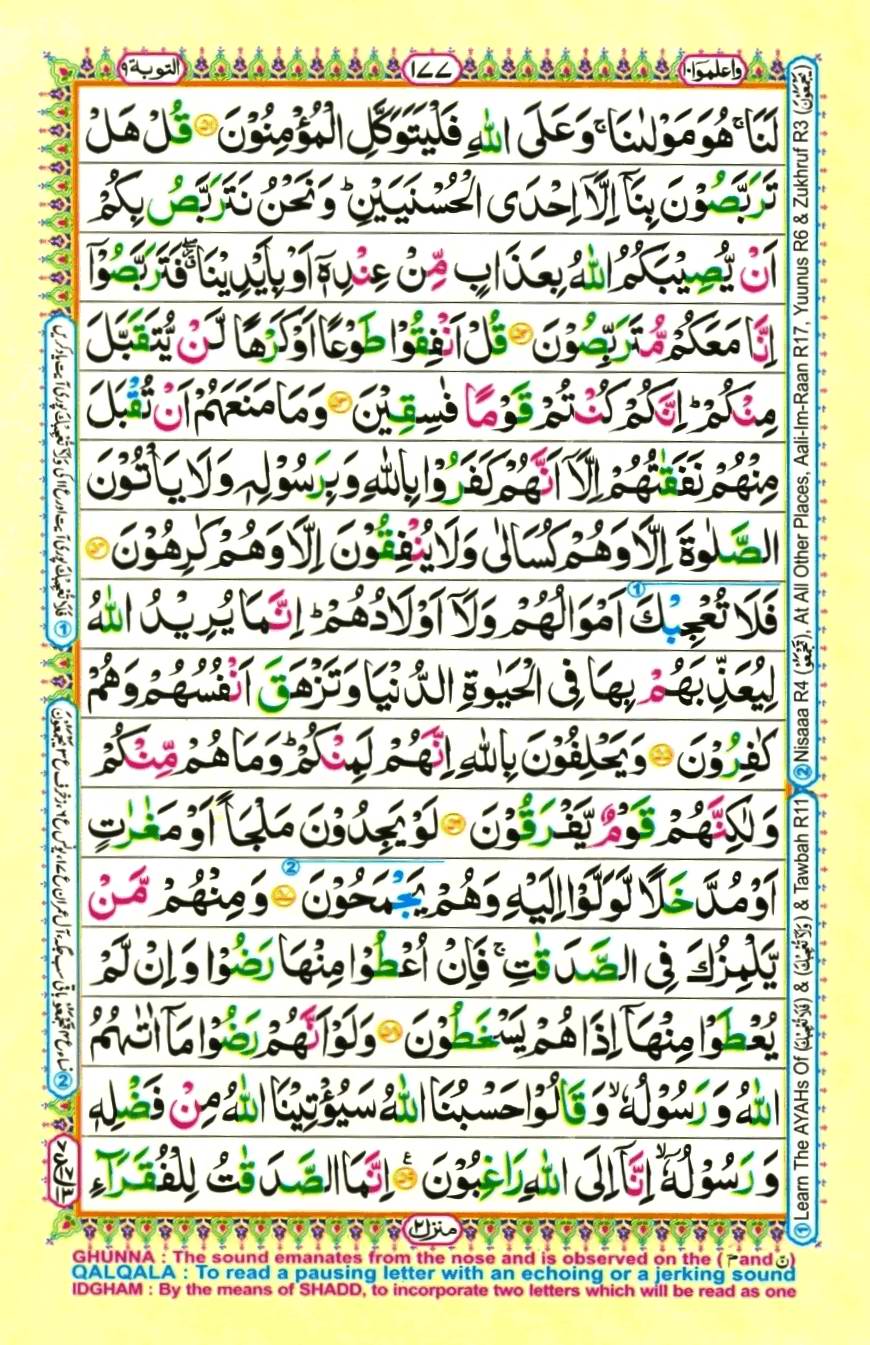 واعلموا ١٠
١٧٧
التوبة ٩
لَنَا ۚ هُوَ مَوْلٰىنَا ۚ وَعَلَى اللّٰهِ فَلْيَتَوَكَّلِ الْمُؤْمِنُوْنَ ۝٥١ قُلْ هَلْ
تَرَبَّصُوْنَ بِنَآ اِلَّآ اِحْدَى الْحُسْنَيَيْنِ ؕ وَنَحْنُ نَتَرَبَّصُ بِكُمْ
اَنْ يُّصِيْبَكُمُ اللّٰهُ بِعَذَابٍ مِّنْ عِنْدِهٖٓ اَوْ بِاَيْدِيْنَا ۖ فَتَرَبَّصُوْٓا
اِنَّا مَعَكُمْ مُّتَرَبِّصُوْنَ ۝٥٢ قُلْ اَنْفِقُوْا طَوْعًا اَوْ كَرْهًا لَّنْ يُّتَقَبَّلَ
مِنْكُمْ ؕ اِنَّكُمْ كُنْتُمْ قَوْمًا فٰسِقِيْنَ ۝٥٣ وَمَا مَنَعَهُمْ اَنْ تُقْبَلَ
مِنْهُمْ نَفَقٰتُهُمْ اِلَّآ اَنَّهُمْ كَفَرُوْا بِاللّٰهِ وَبِرَسُوْلِهٖ وَلَا يَاْتُوْنَ
الصَّلٰوةَ اِلَّا وَهُمْ كُسَالٰى وَلَا يُنْفِقُوْنَ اِلَّا وَهُمْ كٰرِهُوْنَ ۝٥٤
فَلَا تُعْجِبْكَ ① اَمْوَالُهُمْ وَلَآ اَوْلَادُهُمْ ؕ اِنَّمَا يُرِيْدُ اللّٰهُ
لِيُعَذِّبَهُمْ بِهَا فِى الْحَيٰوةِ الدُّنْيَا وَتَزْهَقَ اَنْفُسُهُمْ وَهُمْ
كٰفِرُوْنَ ۝٥٥ وَيَحْلِفُوْنَ بِاللّٰهِ اِنَّهُمْ لَمِنْكُمْ ؕ وَمَا هُمْ مِّنْكُمْ
وَلٰكِنَّهُمْ قَوْمٌ يَّفْرَقُوْنَ ۝٥٦ لَوْ يَجِدُوْنَ مَلْجَاً اَوْ مَغٰرٰتٍ
اَوْ مُدَّخَلًا لَّوَلَّوْا اِلَيْهِ وَهُمْ يَجْمَحُوْنَ ② ۝٥٧ وَمِنْهُمْ مَّنْ
يَّلْمِزُكَ فِى الصَّدَقٰتِ ۚ فَاِنْ اُعْطُوْا مِنْهَا رَضُوْا وَاِنْ لَّمْ
يُعْطَوْا مِنْهَآ اِذَا هُمْ يَسْخَطُوْنَ ۝٥٨ وَلَوْ اَنَّهُمْ رَضُوْا مَآ اٰتٰىهُمُ
اللّٰهُ وَرَسُوْلُهٗ ۙ وَقَالُوْا حَسْبُنَا اللّٰهُ سَيُؤْتِيْنَا اللّٰهُ مِنْ فَضْلِهٖ
وَرَسُوْلُهٗٓ ۙ اِنَّآ اِلَى اللّٰهِ رَاغِبُوْنَ ۝٥٩ اِنَّمَا الصَّدَقٰتُ لِلْفُقَرَآءِ
منزل ٢
① Learn The AYAHs Of (فَلَا تُعْجِبْكَ) & (وَلَا تُعْجِبْكَ) & Tawbah R11
② Nisaaa R4 , At All Other Places, Aali-Im-Raan R17, Yuunus R6 & Zukhruf R3 (يَجْمَعُوْنَ)
GHUNNA : The sound emanates from the nose and is observed on the ( م and ن)
QALQALA : To read a pausing letter with an echoing or a jerking sound
IDGHAM : By the means of SHADD, to incorporate two letters which will be read as one